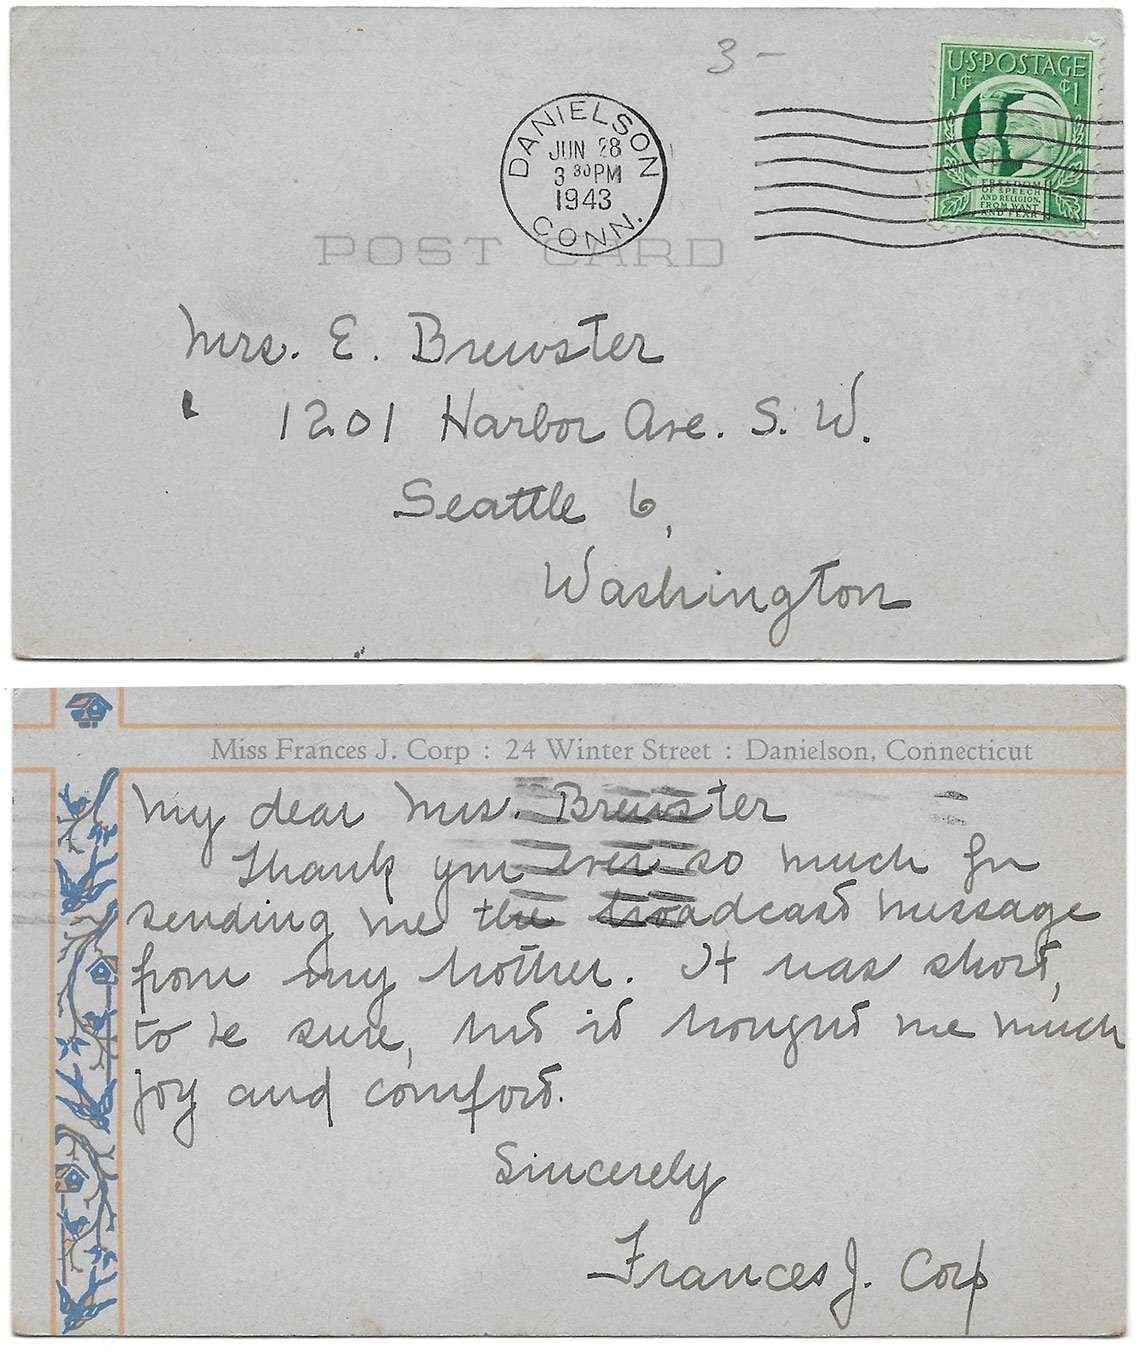 3 –
U·S·POSTAGE
1¢ ¢1
FREEDOM
OF SPEECH
AND RELIGION,
FROM WANT
AND FEAR
DANIELSON
JUN 28
3 30 PM
1943
CONN.
POST CARD
Mrs. E. Brewster
1201 Harbor Ave. S. W.
Seattle 6,
Washington
Miss Frances J. Corp : 24 Winter Street : Danielson, Connecticut
My dear Mrs. Brewster
Thank you ever so much for
sending me the broadcast message
from my brother. It was short,
to be sure, but it brought me much
joy and comfort.
Sincerely
Frances J. Corp